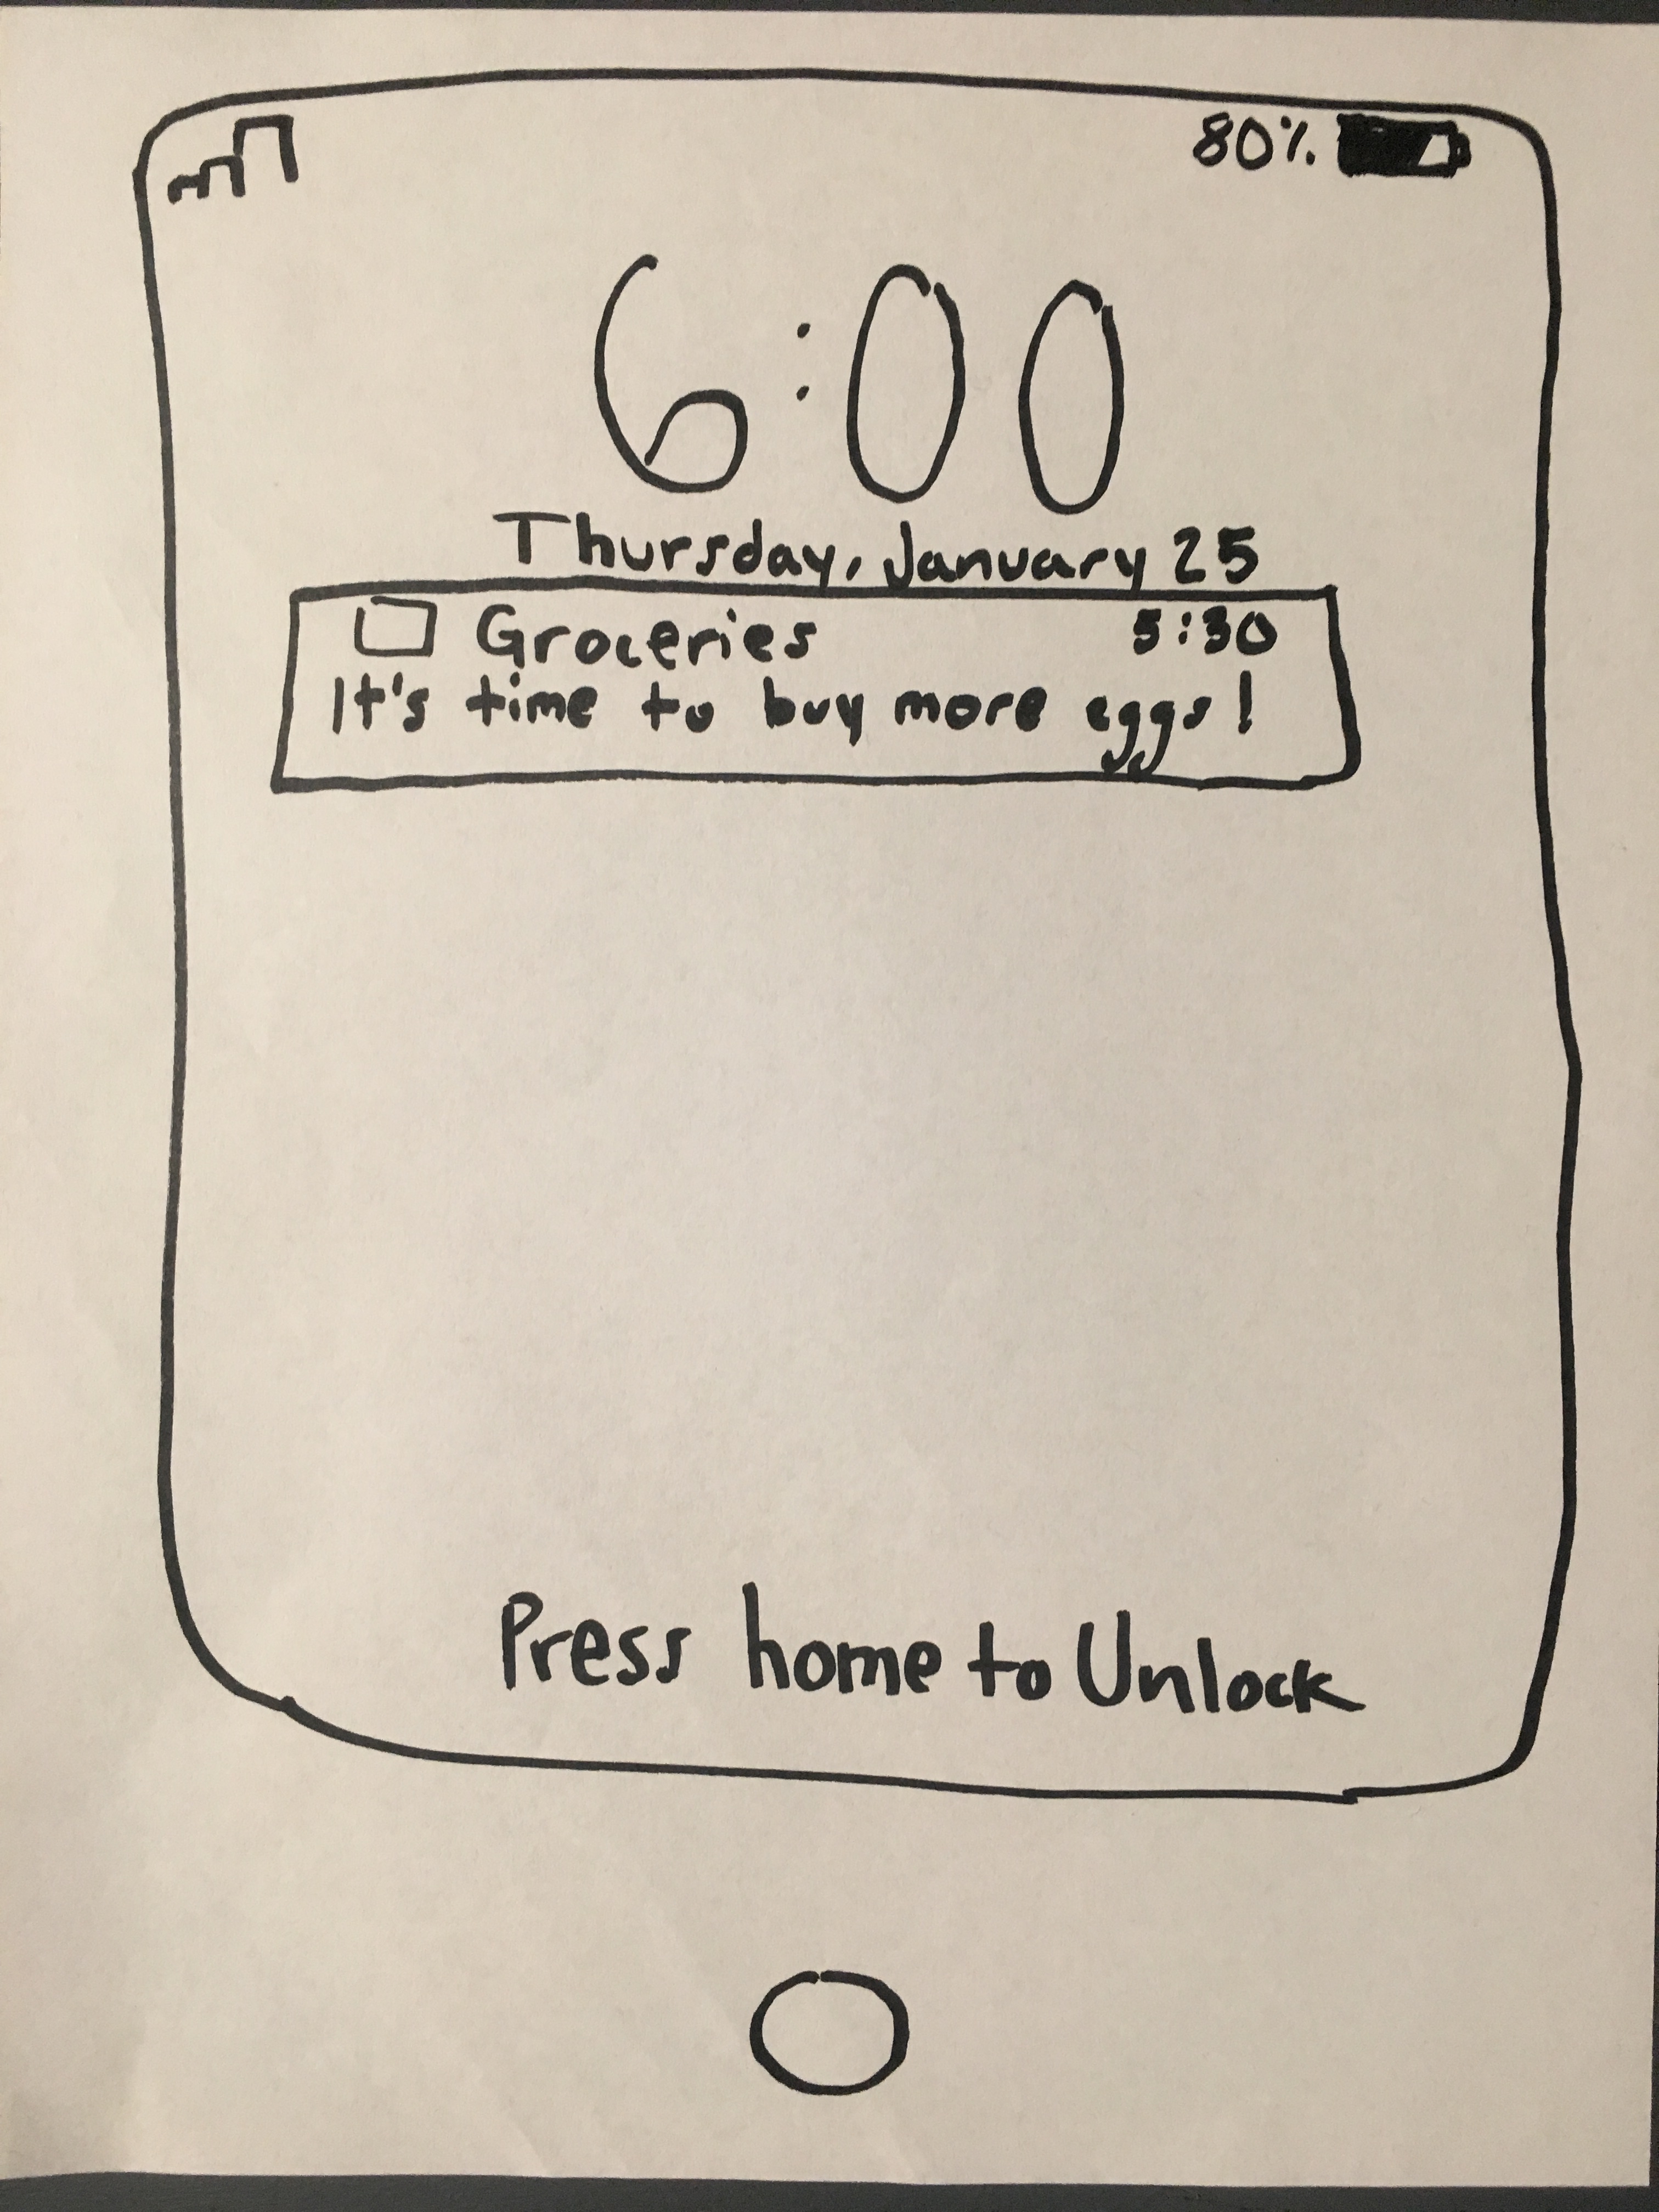 80%
6:00
Thursday, January 25
Groceries 5:30
It's time to buy more eggs!
Press home to Unlock